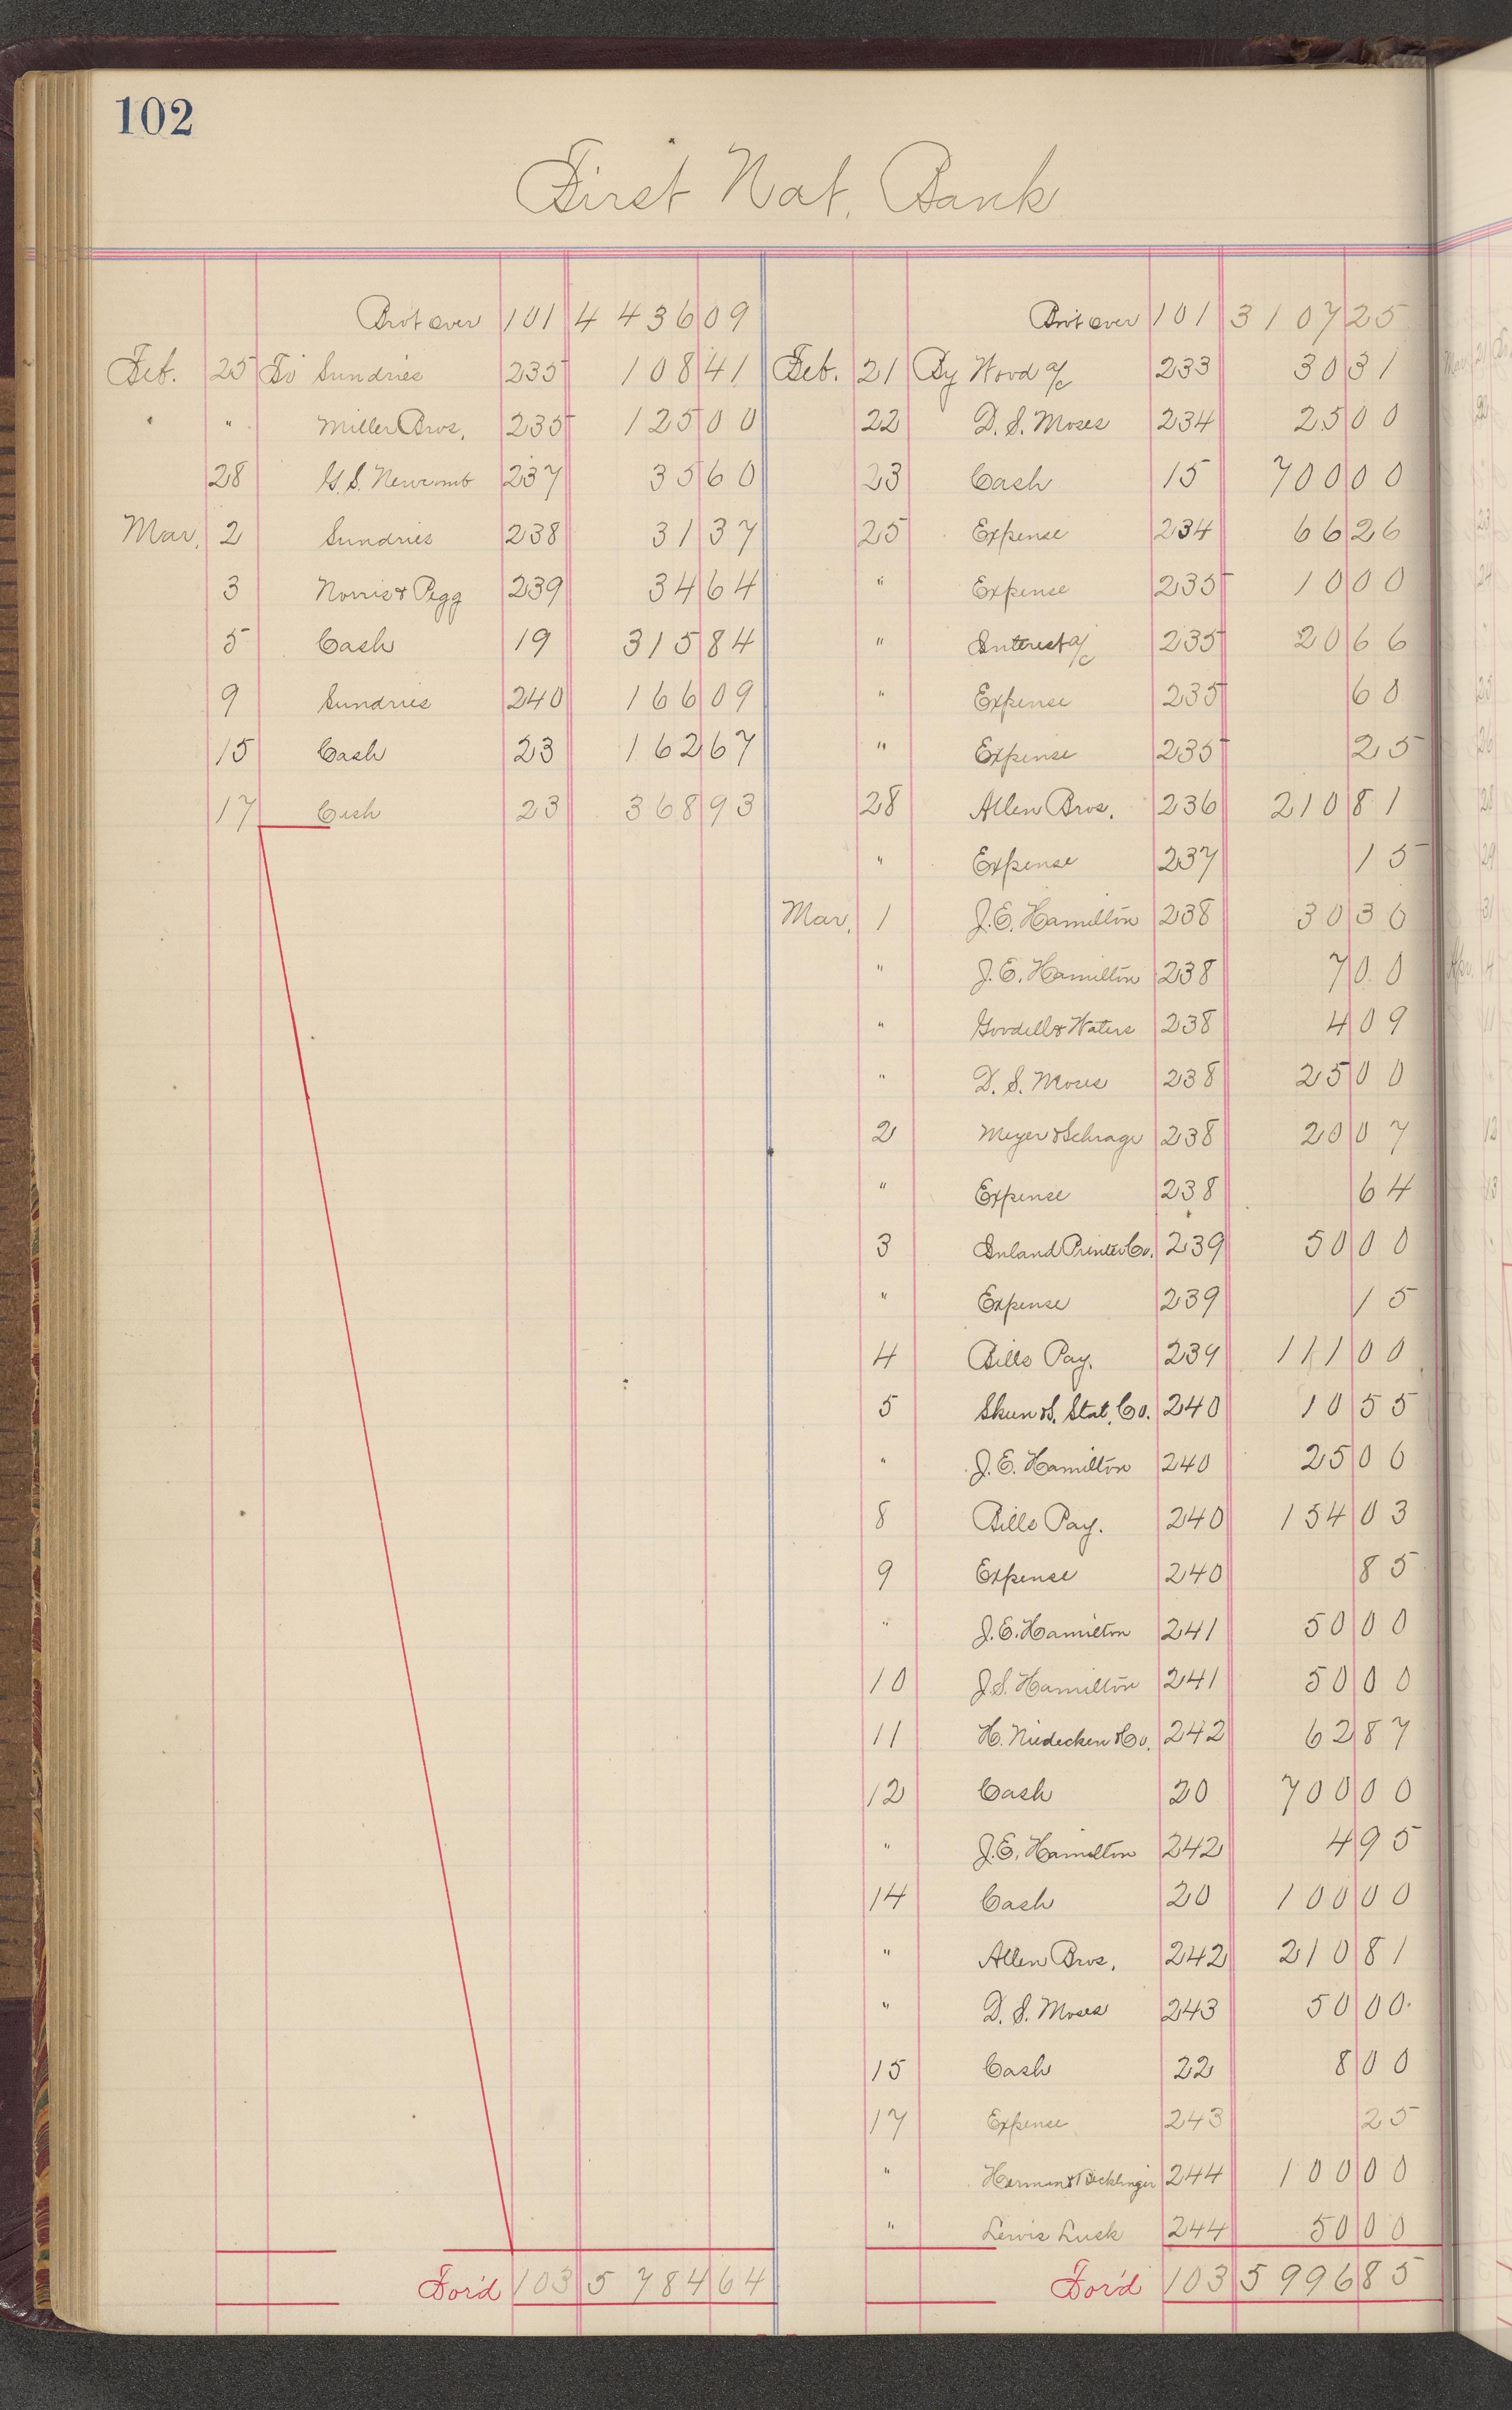 102
First Nat. Bank
Brot over 101 4 436 09
Feb. 25 To Sundries 235 108 41
" " Miller Bros. 235 125 00
28 G. S. Newcomb 237 35 60
Mar. 2 Sundries 238 31 37
3 Norris & Pegg 239 34 64
5 Cash 19 315 84
9 Sundries 240 166 09
15 Cash 23 162 67
17 Cash 23 368 93
For'd 103 5 784 64
Brot over 101 3 107 25
Feb. 21 By Wood a/c 233 30 31
22 D. S. Moses 234 25 00
23 Cash 15 700 00
25 Expense 234 66 26
" Expense 235 10 00
" Interest a/c 235 20 66
" Expense 235 60
" Expense 235 25
28 Allen Bros. 236 210 81
" Expense 237 15
Mar. 1 J. E. Hamilton 238 30 30
" J. E. Hamilton 238 7 00
" Goodell & Waters 238 4 09
" D. S. Moses 238 25 00
2 Meyer & Schrage 238 20 07
" Expense 238 64
3 Inland Printer Co. 239 50 00
" Expense 239 15
4 Bills Pay. 239 111 00
5 Skeen & S. Stat. Co. 240 10 55
" J. E. Hamilton 240 25 00
8 Bills Pay. 240 154 03
9 Expense 240 85
" J. E. Hamilton 241 50 00
10 J. S. Hamilton 241 50 00
11 H. Niedecken & Co. 242 62 87
12 Cash 20 700 00
" J. E. Hamilton 242 4 95
14 Cash 20 100 00
" Allen Bros. 242 210 81
" D. S. Moses 243 50 00
15 Cash 22 8 00
17 Expense 243 25
" Herman & 244 100 00
" Lewis Lusk 244 50 00
For'd 103 5 996 85